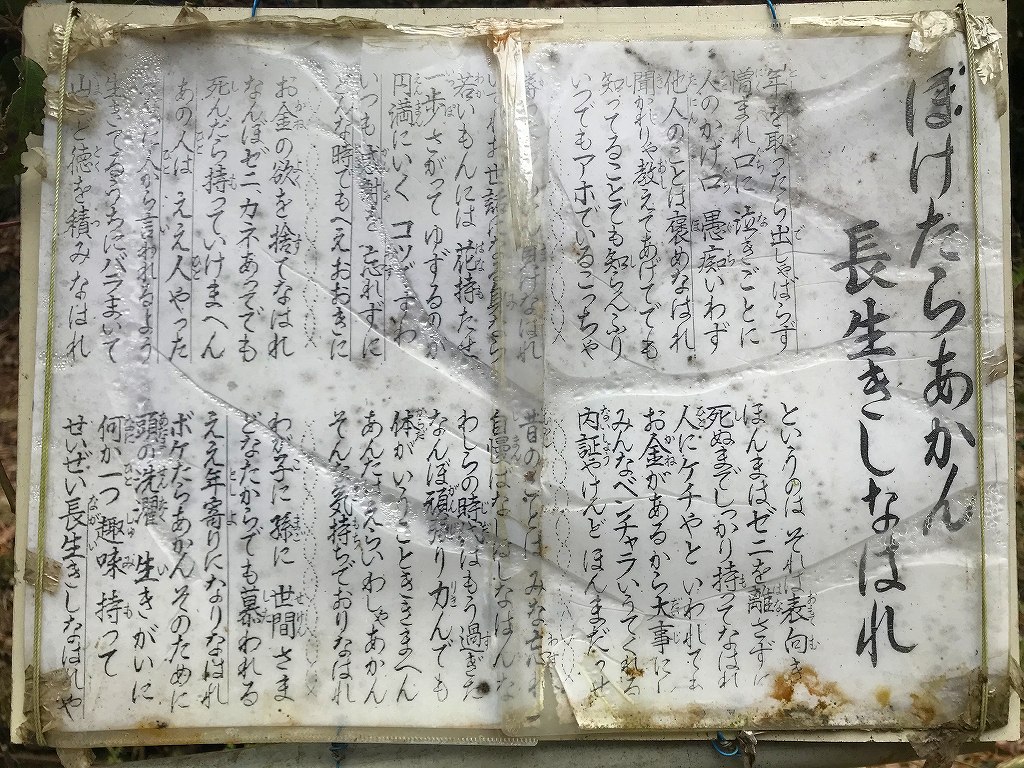 ぼけたらあかん
長生きしなはれ
年を取ったら出しゃばらず
憎まれ口に 泣きごとに
人のかげ口 愚痴いわず
他人のことは褒めなはれ
聞かれりゃ教えてあげてでも
知ってることでも知らんふり
いつでもアホでいるこっちゃ
負けなはれ
お世話になる身なら
若いもんには 花持たせ
一歩さがって ゆずるのが
円満にいく コツですわ
いつも感謝を 忘れずに
どんな時でもへえおおきに
お金の欲を捨てなはれ
なんぼゼニ、カネあってでも
死んだら持っていけまへん
あの人は ええ人やった
人から言われるよう
生きてるうちにバラまいて
山ほど徳を積みなはれ
というのは それは表向き
ほんまはゼニを離さずに
死ぬまでしっかり持ってなはれ
人にケチやと いわれても
お金があるから大事にし
みんなベンチャラいうてくれる
内証やけんど ほんまだっせ
昔のことは みな忘れ
自慢ばなしはしなはんな
わしらの時代はもう過ぎた
なんぼ頑張り力んでも
体がいうことききまへん
あんたはえらいわしゃあかん
そんな気持ちでおりなはれ
わが子に孫に 世間さま
どなたからでも慕われる
ええ年寄りになりなはれ
ボケたらあかんそのために
頭の洗濯 生きがいに
何か一つ趣味 持って
せいぜい長生きしなはれや